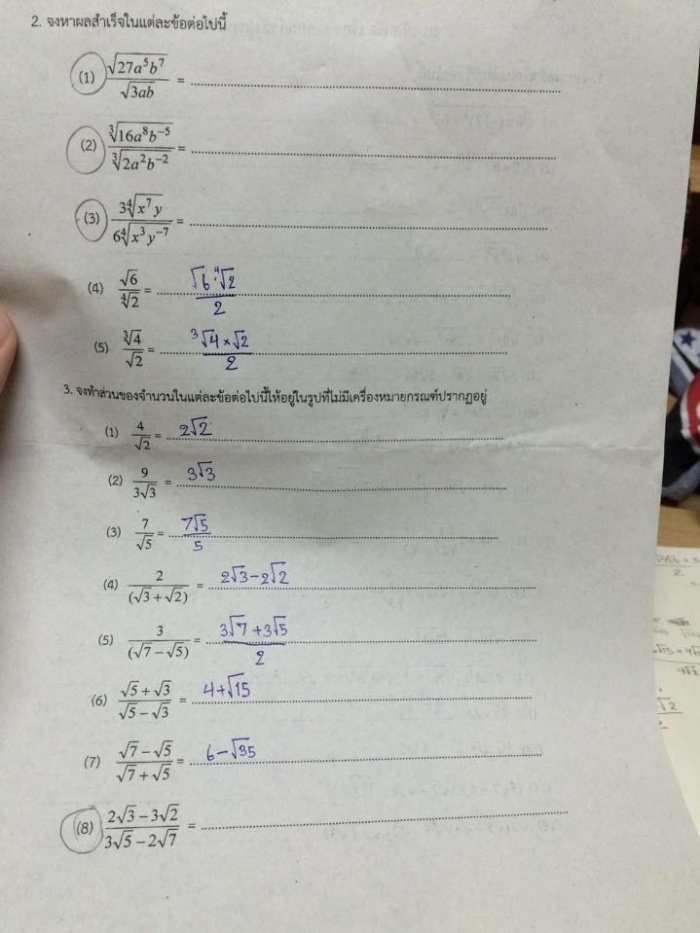 2. จงหาผลสำเร็จในแต่ละข้อต่อไปนี้
(1) √(27a⁵b⁷) / √(3ab) = ........
(2) ∛(16a⁸b⁻⁵) / ∛(2a²b⁻²) = ........
(3) 3∜(x⁷y) / 6∜(x³y⁻⁷) = ........
(4) √6 / ∜2 = √6·∜2 / 2
(5) ∛4 / √2 = ∛4 × √2 / 2
3. จงทำส่วนของจำนวนในแต่ละข้อต่อไปนี้ให้อยู่ในรูปที่ไม่มีเครื่องหมายกรณฑ์ปรากฏอยู่
(1) 4 / √2 = 2√2
(2) 9 / 3√3 = 3√3
(3) 7 / √5 = 7√5 / 5
(4) 2 / (√3 + √2) = 2√3 − 2√2
(5) 3 / (√7 − √5) = 3√7 + 3√5 / 2
(6) √5 + √3 / √5 − √3 = 4 + √15
(7) √7 − √5 / √7 + √5 = 6 − √35
(8) 2√3 − 3√2 / 3√5 − 2√7 = ........